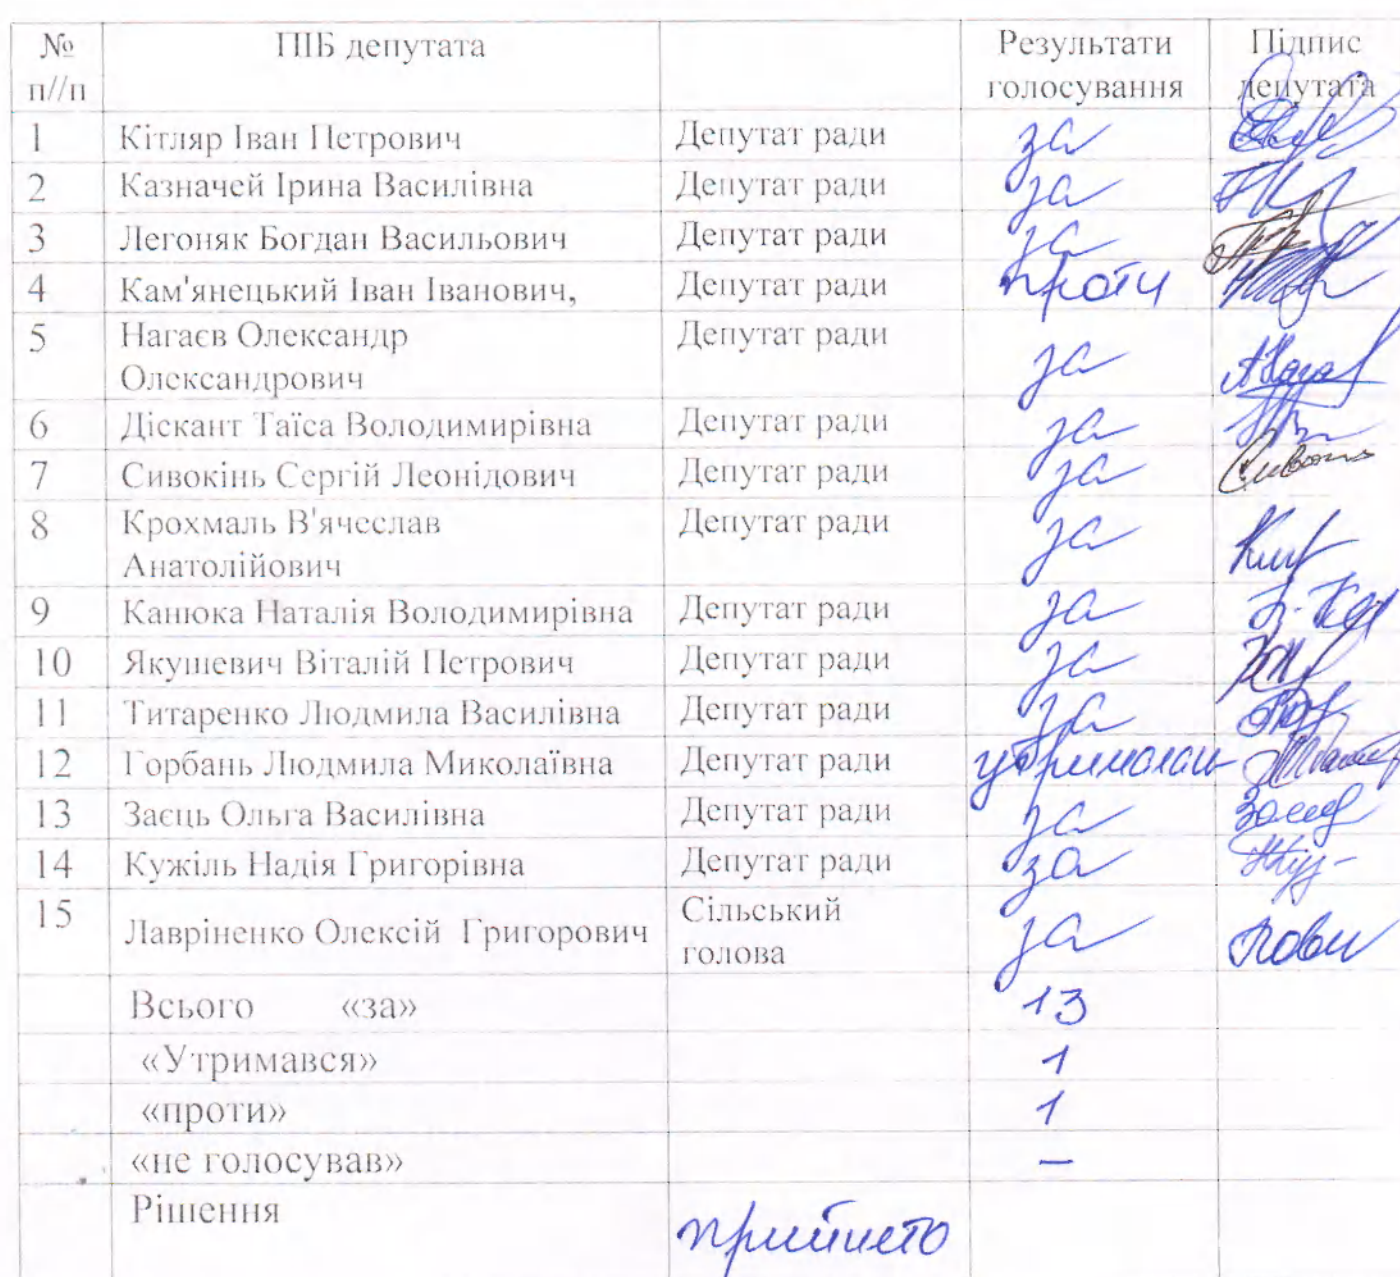 № ПІБ депутата Результати Підпис
п//п голосування депутата
1 Кітляр Іван Петрович Депутат ради за
2 Казначей Ірина Василівна Депутат ради за
3 Легоняк Богдан Васильович Депутат ради за
4 Кам'янецький Іван Іванович, Депутат ради проти
5 Нагаєв Олександр Депутат ради за
Олександрович
6 Діскант Таїса Володимирівна Депутат ради за
7 Сивокінь Сергій Леонідович Депутат ради за
8 Крохмаль В'ячеслав Депутат ради за
Анатолійович
9 Канюка Наталія Володимирівна Депутат ради за
10 Якушевич Віталій Петрович Депутат ради за
11 Титаренко Людмила Василівна Депутат ради за
12 Горбань Людмила Миколаївна Депутат ради
13 Заєць Ольга Василівна Депутат ради за
14 Кужіль Надія Григорівна Депутат ради за
15 Лавріненко Олексій Григорович Сільський за
голова
Всього «за» 13
«Утримався» 1
«проти» 1
«не голосував» –
Рішення прийнято